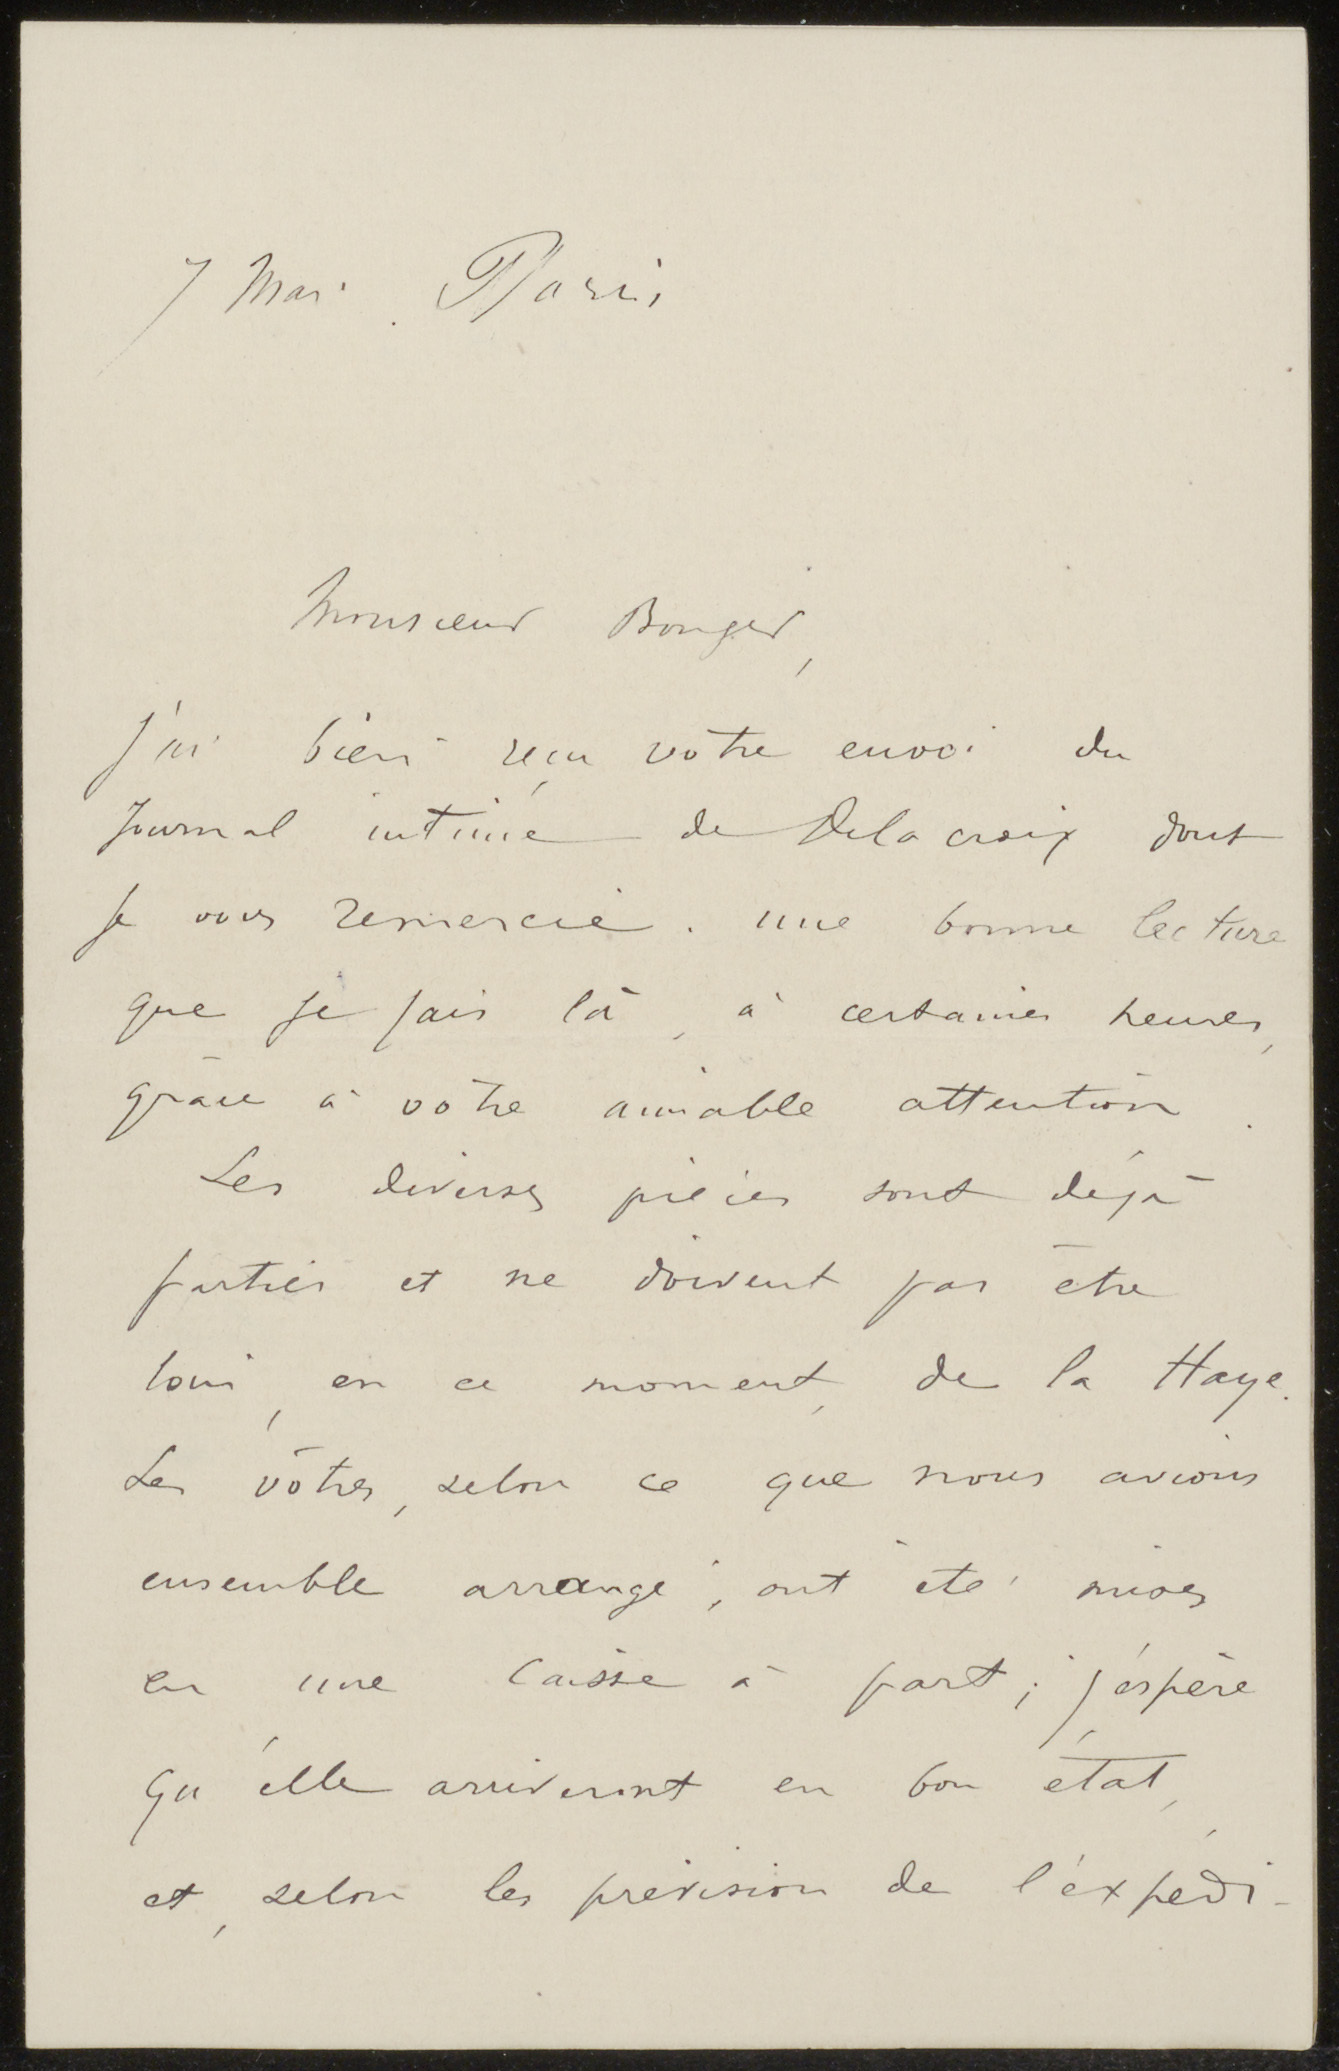 7 Mai. Paris
Monsieur Bonger,
J'ai bien reçu votre envoi du
Journal intime de Delacroix dont
je vous remercie. une bonne lecture
que je fais là, à certaines heures,
grâce à vôtre aimable attention.
Les diverses pièces sont déjà
parties et ne doivent pas être
loin, en ce moment, de la Haye.
Les vôtres, selon ce que nous avions
ensemble arrangé, ont été mises
en une caisse à part; j'espère
qu'elle arriveront en bon état,
et, selon les prévision de l'éxpédi-